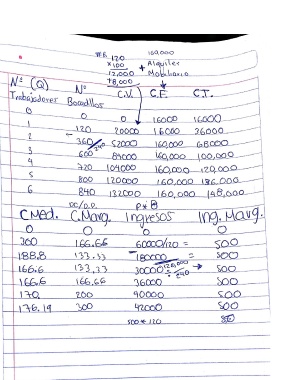 #6. 120 160,000
×100 Alquiler
12,000 + Mobiliario
+8,000
Nº (Q) Nº
Trabajadores Bocadillos C.V. C.F. C.T.
0 0 0 16000 16000
1 120 20000 16000 36000
2 360 52000 160,000 68000
240
3 600 84000 160,000 100,000
4 720 104000 160,000 120,000
5 800 120000 160,000 186,000
6 840 132000 160,000 148,000
C.Med. C.Marg. Ingresos Ing. Marg.
0 0 0 0
300 166.66 60000/120 = 500
188.8 133.33 180000 = 500
166.6 133,33 30000 500
166.6 166.66 36000 500
170 200 40000 500
176.19 300 42000 500
500 * 120